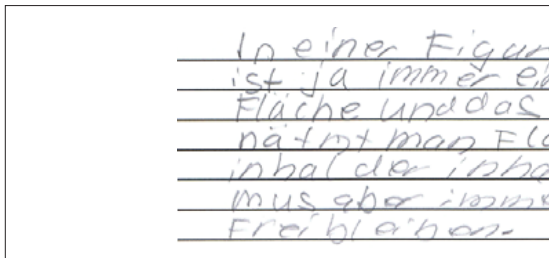 In einer Figur
ist ja immer ei
Fläche und das
nätmt man Flä
inhal der inha
mus aber imme
Frei bleiben.